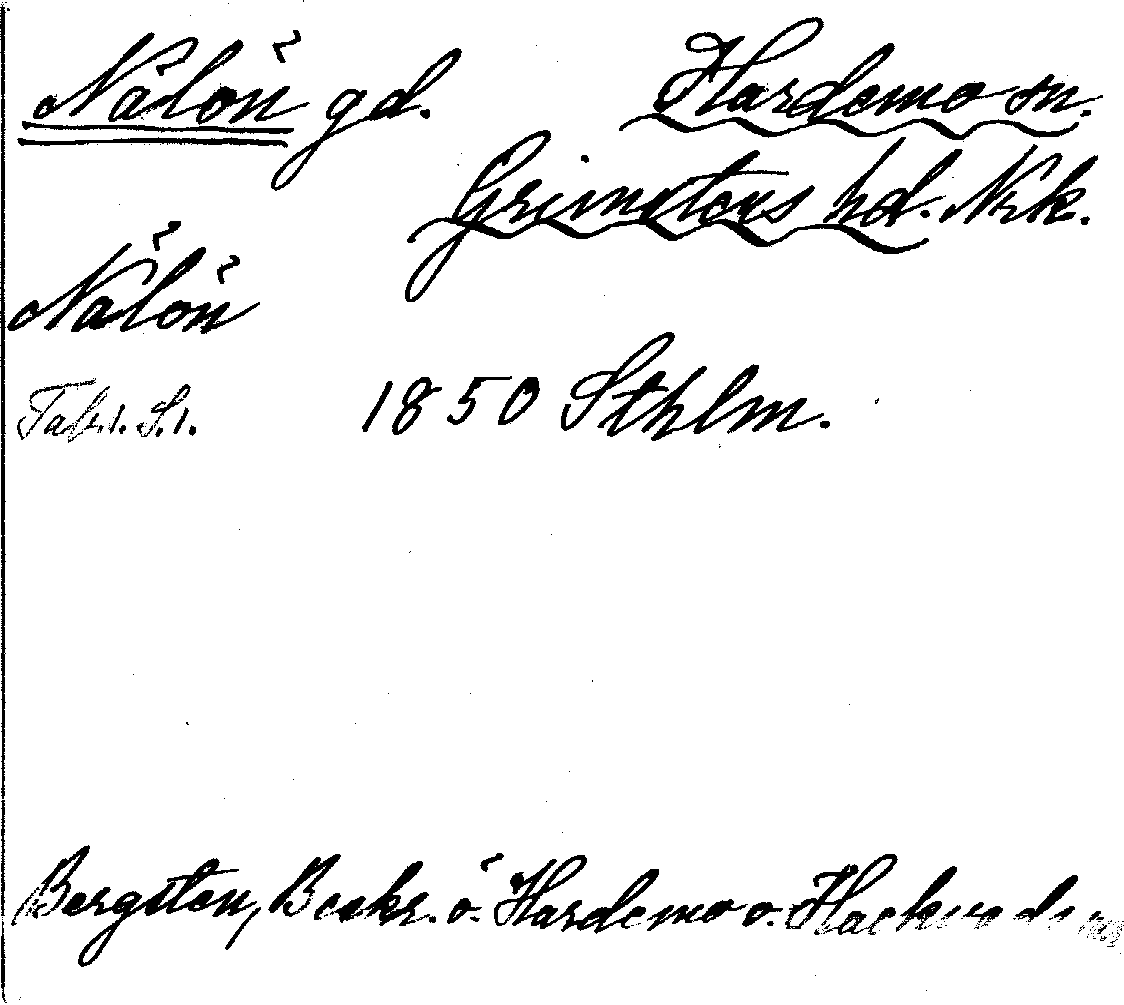 Nålön gd. Hardemo sn.
Grimstens hd. Nrk.
Nålön
1850 Sthlm.
Bergsten, Beskr. ö. Hardemo o. Hackvads